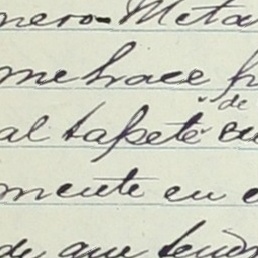 nero-Meta
me hace p
de
al tapete su
mente en
de que tend